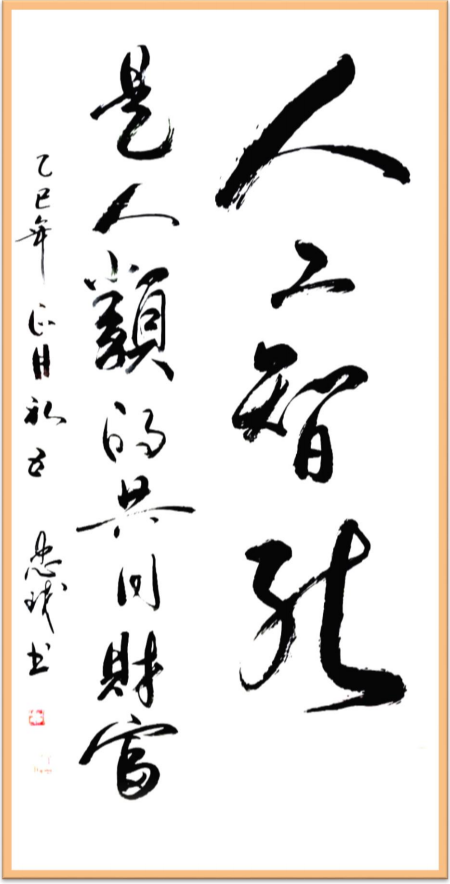 人工智能
是人類的共同財富
乙巳年正月初五 忠㦮書